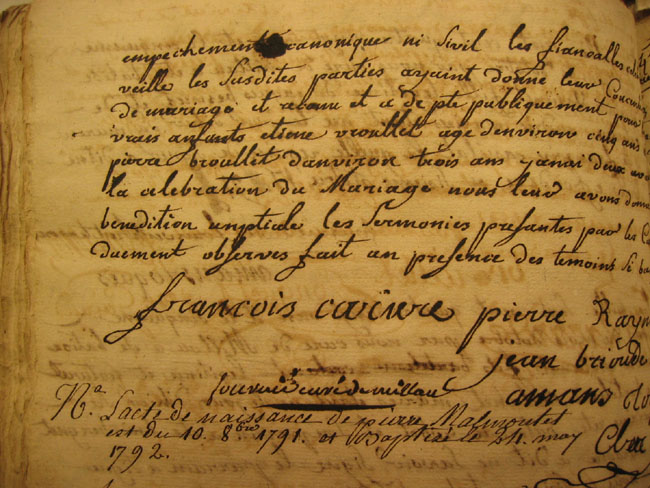 empechement canonique ni sivil les fiancalles
veille les susdites parties ayaint donné leur
de mariage et reconu et a de pte publiquement pour
vrais anfants etiene vroullet age denviron cinq ans
pierre broullit danviron trois ans janai deux
la celebration du Mariage nous leur avons
benedition nuptiale les sermonies presantes par les
duement observes fait an presence des temoins si
francois carïere pierre Raym
jean brioude
curé de millau amans
Na. Lacte de naissance de pierre Malmoutet
est du 10. 8bre 1791. et Baptisé le 24. may
1792.